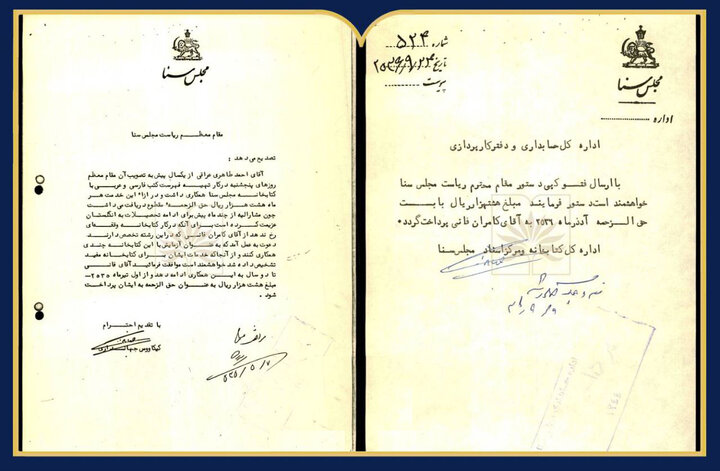 مجلس سنا
شماره ۵۲۴
تاریخ ۲۵۳۶/۹/۲۴
پیوست
اداره
اداره کل حسابداری و دفتر کارپردازی
با ارسال فتوکپی دستور مقام محترم ریاست مجلس سنا
خواهشمند است دستور فرمایند مبلغ هشت هزار ریال بابت
حق الزحمه آذر ماه ۲۵۳۶ به آقای کامران فانی پرداخت گردد.
اداره کل کتابخانه و مرکز اسناد مجلس سنا
مجلس سنا
مقام معظم ریاست مجلس سنا
تصدیع می دهد:
آقای احمد طاهری عراقی از یکسال پیش به تصویب آن مقام معظم
روزهای پنجشنبه در کار تهیه فهرست کتب فارسی و عربی با
کتابخانه مجلس سنا همکاری داشت و در ازاء این خدمت هر
ماه هشت هزار ریال حق الزحمه مقطوع دریافت می داشت
چون مشارالیه از چند ماه پیش برای ادامه تحصیلات به انگلستان
عزیمت کرده است برای آنکه در کار کتابخانه وقفه‌ای
رخ ندهد از آقای کامران فانی که در این رشته تخصص دارند
دعوت به عمل آمد که به عنوان آزمایش با این کتابخانه چندی
همکاری کنند و از آنجا که خدمات ایشان برای کتابخانه مفید
تشخیص داده شد خواهشمند است موافقت فرمائید آقای فانی
تا دو سال به این همکاری ادامه دهد و از اول تیرماه ۲۵۳۵
مبلغ هشت هزار ریال به عنوان حق الزحمه به ایشان پرداخت
شود.
با تقدیم احترام
کیکاووس جهانداری